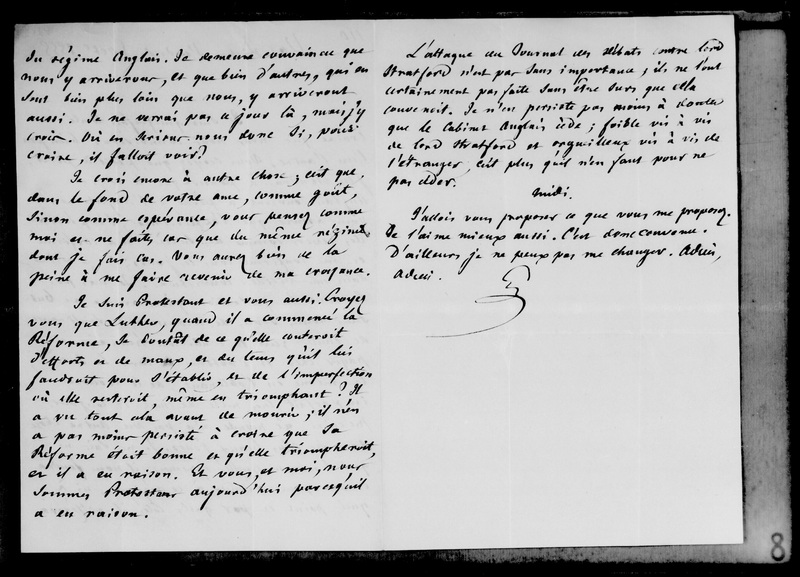 du régime Anglais. Je demeure convaincu que
nous y arriverons, et que bien d'autres, qui en
sont bien plus loin que nous, y arriveront
aussi. Je ne verrai pas ce jour là, mais j'y
crois. Où en serions nous donc si, pour
croire, il falloit voir?
Je crois encore à autre chose; c'est que,
dans le fond de votre ame, comme goût,
sinon comme espérance, vous pensez comme
moi et ne faites cas que du même régime
dont je fais cas. Vous aurez bien de la
peine à me faire revenir de ma croyance.
Je suis Protestant et vous aussi. Croyez
vous que Luther, quand il a commencé la
Réforme, se doutât de ce qu'elle couteroit
d'efforts et de maux, et du tems qu'il lui
faudroit pour s'établir, et de l'imperfection
où elle resteroit, même en triomphant? Il
a vu tout cela avant de mourir; il n'en
a pas moins persisté à croire que sa
Réforme était bonne et qu'elle triompheroit,
et il a eu raison. Et vous, et moi, nous
sommes Protestans aujourd'hui parcequ'il
a eu raison.
L'attaque du Journal des Débats contre lord
Stratford n'est pas sans importance; ils ne l'ont
certainement pas faite sans être surs que cela
convenoit. Je n'en persiste pas moins à douter
que le Cabinet Anglais cède; foible vis à vis
de lord Stratford et orgueilleux vis à vis de
l'étranger, c'est plus qu'il n'en faut pour ne
pas céder.
Midi.
J'allois vous proposer ce que vous me proposez.
Je l'aime mieux aussi. C'est donc convenu.
D'ailleurs je ne peux pas me changer. Adieu,
Adieu.
G
8